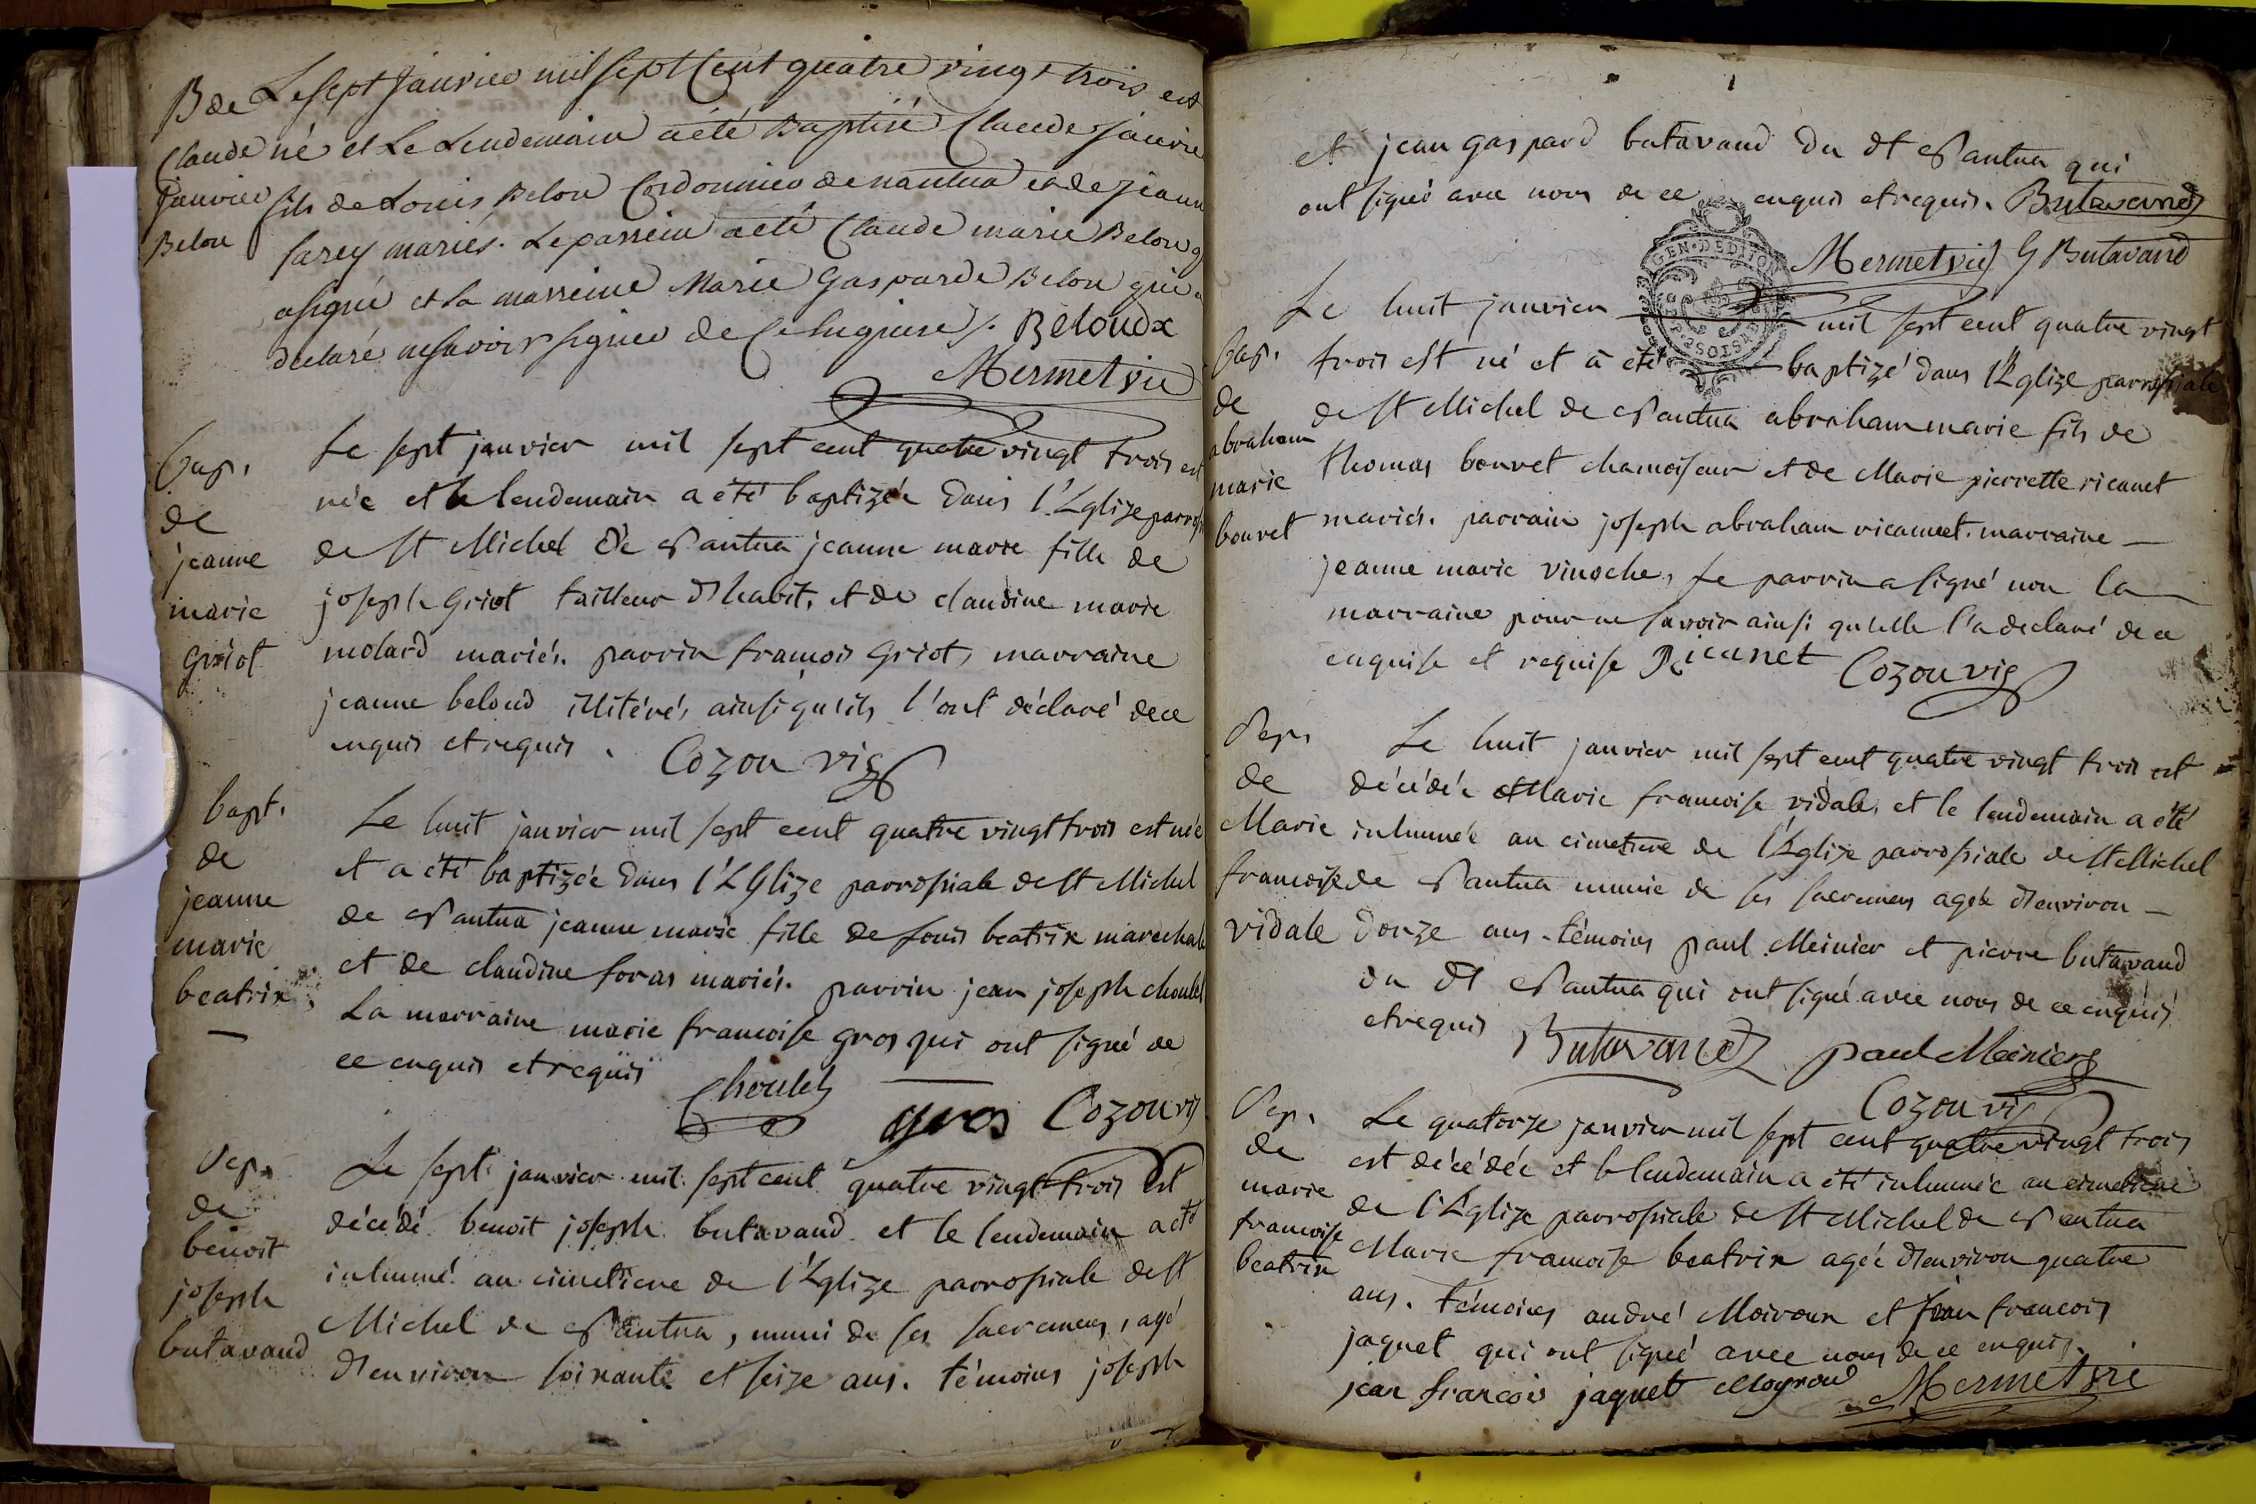 B de
Claude
janvier
Belou
Le sept Janvier mil sept Cent quatre vingt trois est
né et Le Lendemain a été Baptisé Claude janvie
fils de Louis Belou Cordonnier de nantua et de jeann
farey mariés. Le parrein a été Claude marie Belou q
a signé et la marreine Marie Gasparde Belou qui a
declaré ne savoir signer de Ce Enquise /. Beloudx
Mermet vic
bap.
de
jeanne
marie
griot
Le sept janvier mil sept cent quatre vingt trois est
née et le lendemain a été baptizée dans l'Eglize parros
de St Michel de Nantua jeanne marie fille de
joseph Griot tailleur d'habit, et de claudine marie
molard mariés. parrin francois Griot, marraine
jeanne beloud illitérés ainsi qu'ils l'ont déclaré de ce
enquis et requis. Cozon vic
bapt.
de
jeanne
marie
beatrix.
Le huit janvier mil sept cent quatre vingt trois est née
et a été baptizée dans l'Eglize parrossiale de St Michel
de Nantua jeanne marie fille de Louis beatrix marechal
et de claudine foras mariés. parrin jean joseph choulet
La marraine marie francoise gros qui ont signé de
ce enquis et requis Choulet
gros Cozon vic
Sep.
de
benoit
joseph
butavand
Le sept janvier mil sept cent quatre vingt trois est
décédé benoit joseph butavand et le lendemain a été
inhumé au cimetiere de l'Eglize parrossiale de St
Michel de Nantua, muni de ses sacremens, agé
d'environ soixante et seize ans. témoins joseph
et jean gaspard butavand du dt Nantua qui
ont signé avec nous de ce enquis et requis. Butavand
Mermet vic G Butavand
GEN·DEDITION
bap.
de
abraham
marie
bouvet
Le huit janvier mil sept cent quatre vingt
trois est né et a été baptizé dans l'Eglize parrossiale
de St Michel de Nantua abraham marie fils de
thomas bouvet chamoiseur et de Marie pierrette ricanet
mariés. parrain joseph abraham ricanet. marraine
jeanne marie vinoche, Le parrin a signé non la
marraine pour ne savoir ainsi qu'elle l'a declaré de ce
enquise et requise Ricanet Cozon vic
Sep.
de
Marie
francoise
vidale
Le huit janvier mil sept cent quatre vingt trois est
décédée Marie francoise vidale, et le lendemain a été
inhumée au cimetiere de l'Eglize parrossiale de St Michel
de Nantua munie de ses sacremens agée d'environ
douze ans. témoins paul Meinier et pierre butavand
du dt Nantua qui ont signé avec nous de ce enquis
et requis Butavand paul Meinier
Cozon vic
Sep.
de
marie
francoise
beatrix
Le quatorze janvier mil sept cent quatre vingt trois
est décédée et le lendemain a été inhumée au cimetiere
de l'Eglize parrossiale de St Michel de Nantua
Marie francoise beatrix agée d'environ quatre
ans. témoins andré Moiroux et jean francois
jaquet qui ont signé avec nous de ce enquis.
jean francois jaquet Mermet vic